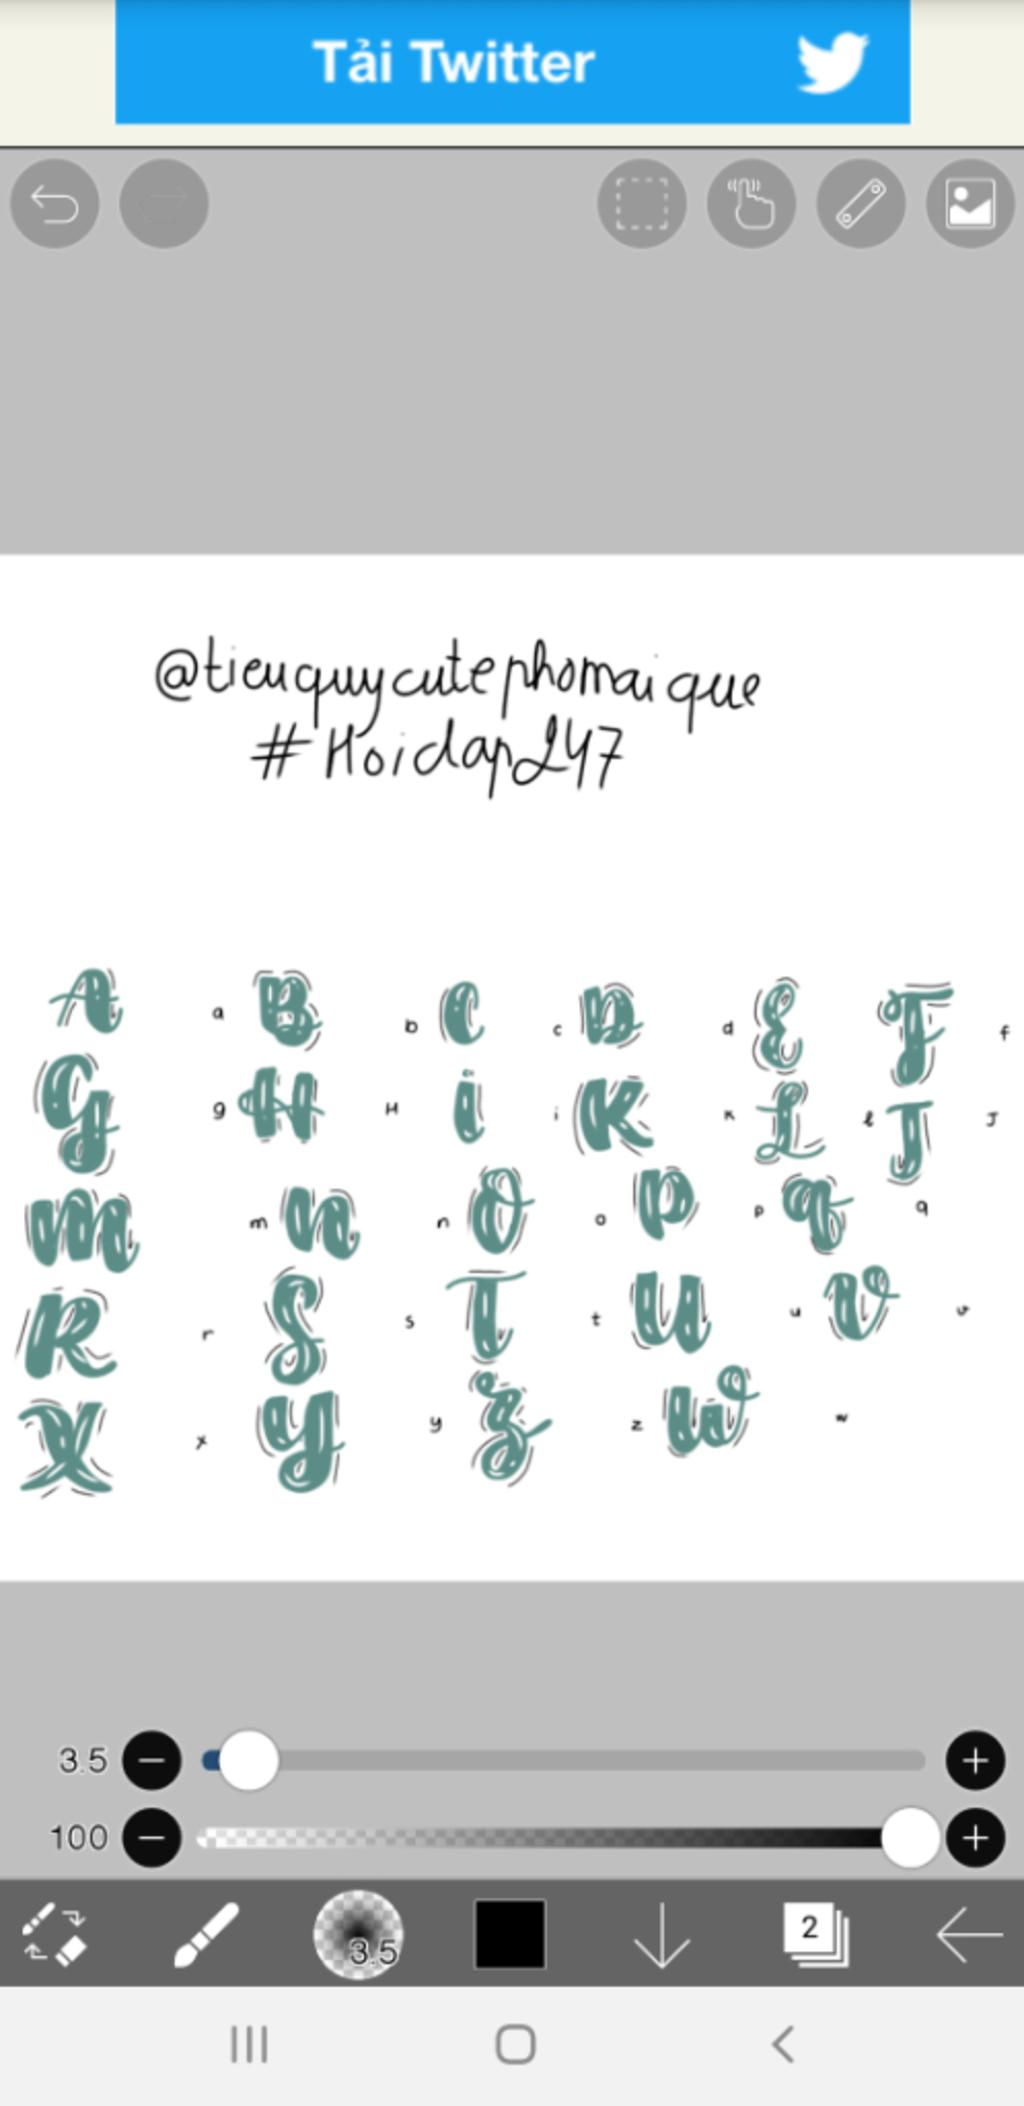 Tải Twitter
@tieuquycutephomaique
#Hoidap247
A a B b C c D d E F f
G g H H i i K k L l J J
m m n n O o P p q q
R r S s T t U u V v
X x Y y Z z W w
3.5
100
3.5 2